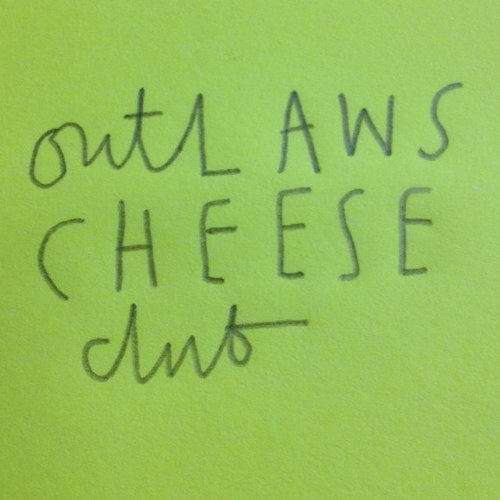 outLAWS
CHEESE
club